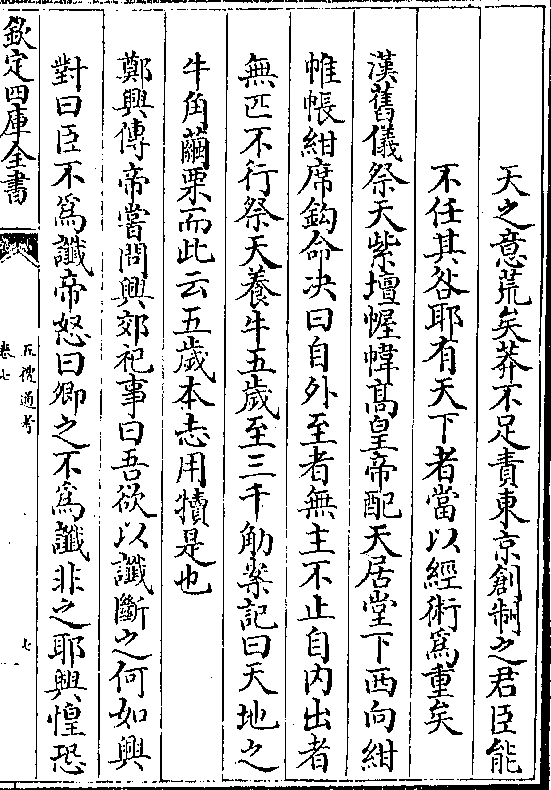 天之意荒矣莽不足責東京創制之君臣能
不任其咎耶有天下者當以經術爲重矣
漢舊儀祭天紫壇幄幃髙皇帝配天居堂下西向紺
帷帳紺席鈎命决曰自外至者無主不止自内出者
無匹不行祭天養牛五歲至三千觔案記曰天地之
牛角繭栗而此云五歲本志用犢是也
鄭興傳帝嘗問興郊祀事曰吾欲以讖斷之何如興
對曰臣不爲讖帝怒曰卿之不爲讖非之耶興惶恐
欽定四庫全書
五禮通考
卷七
七